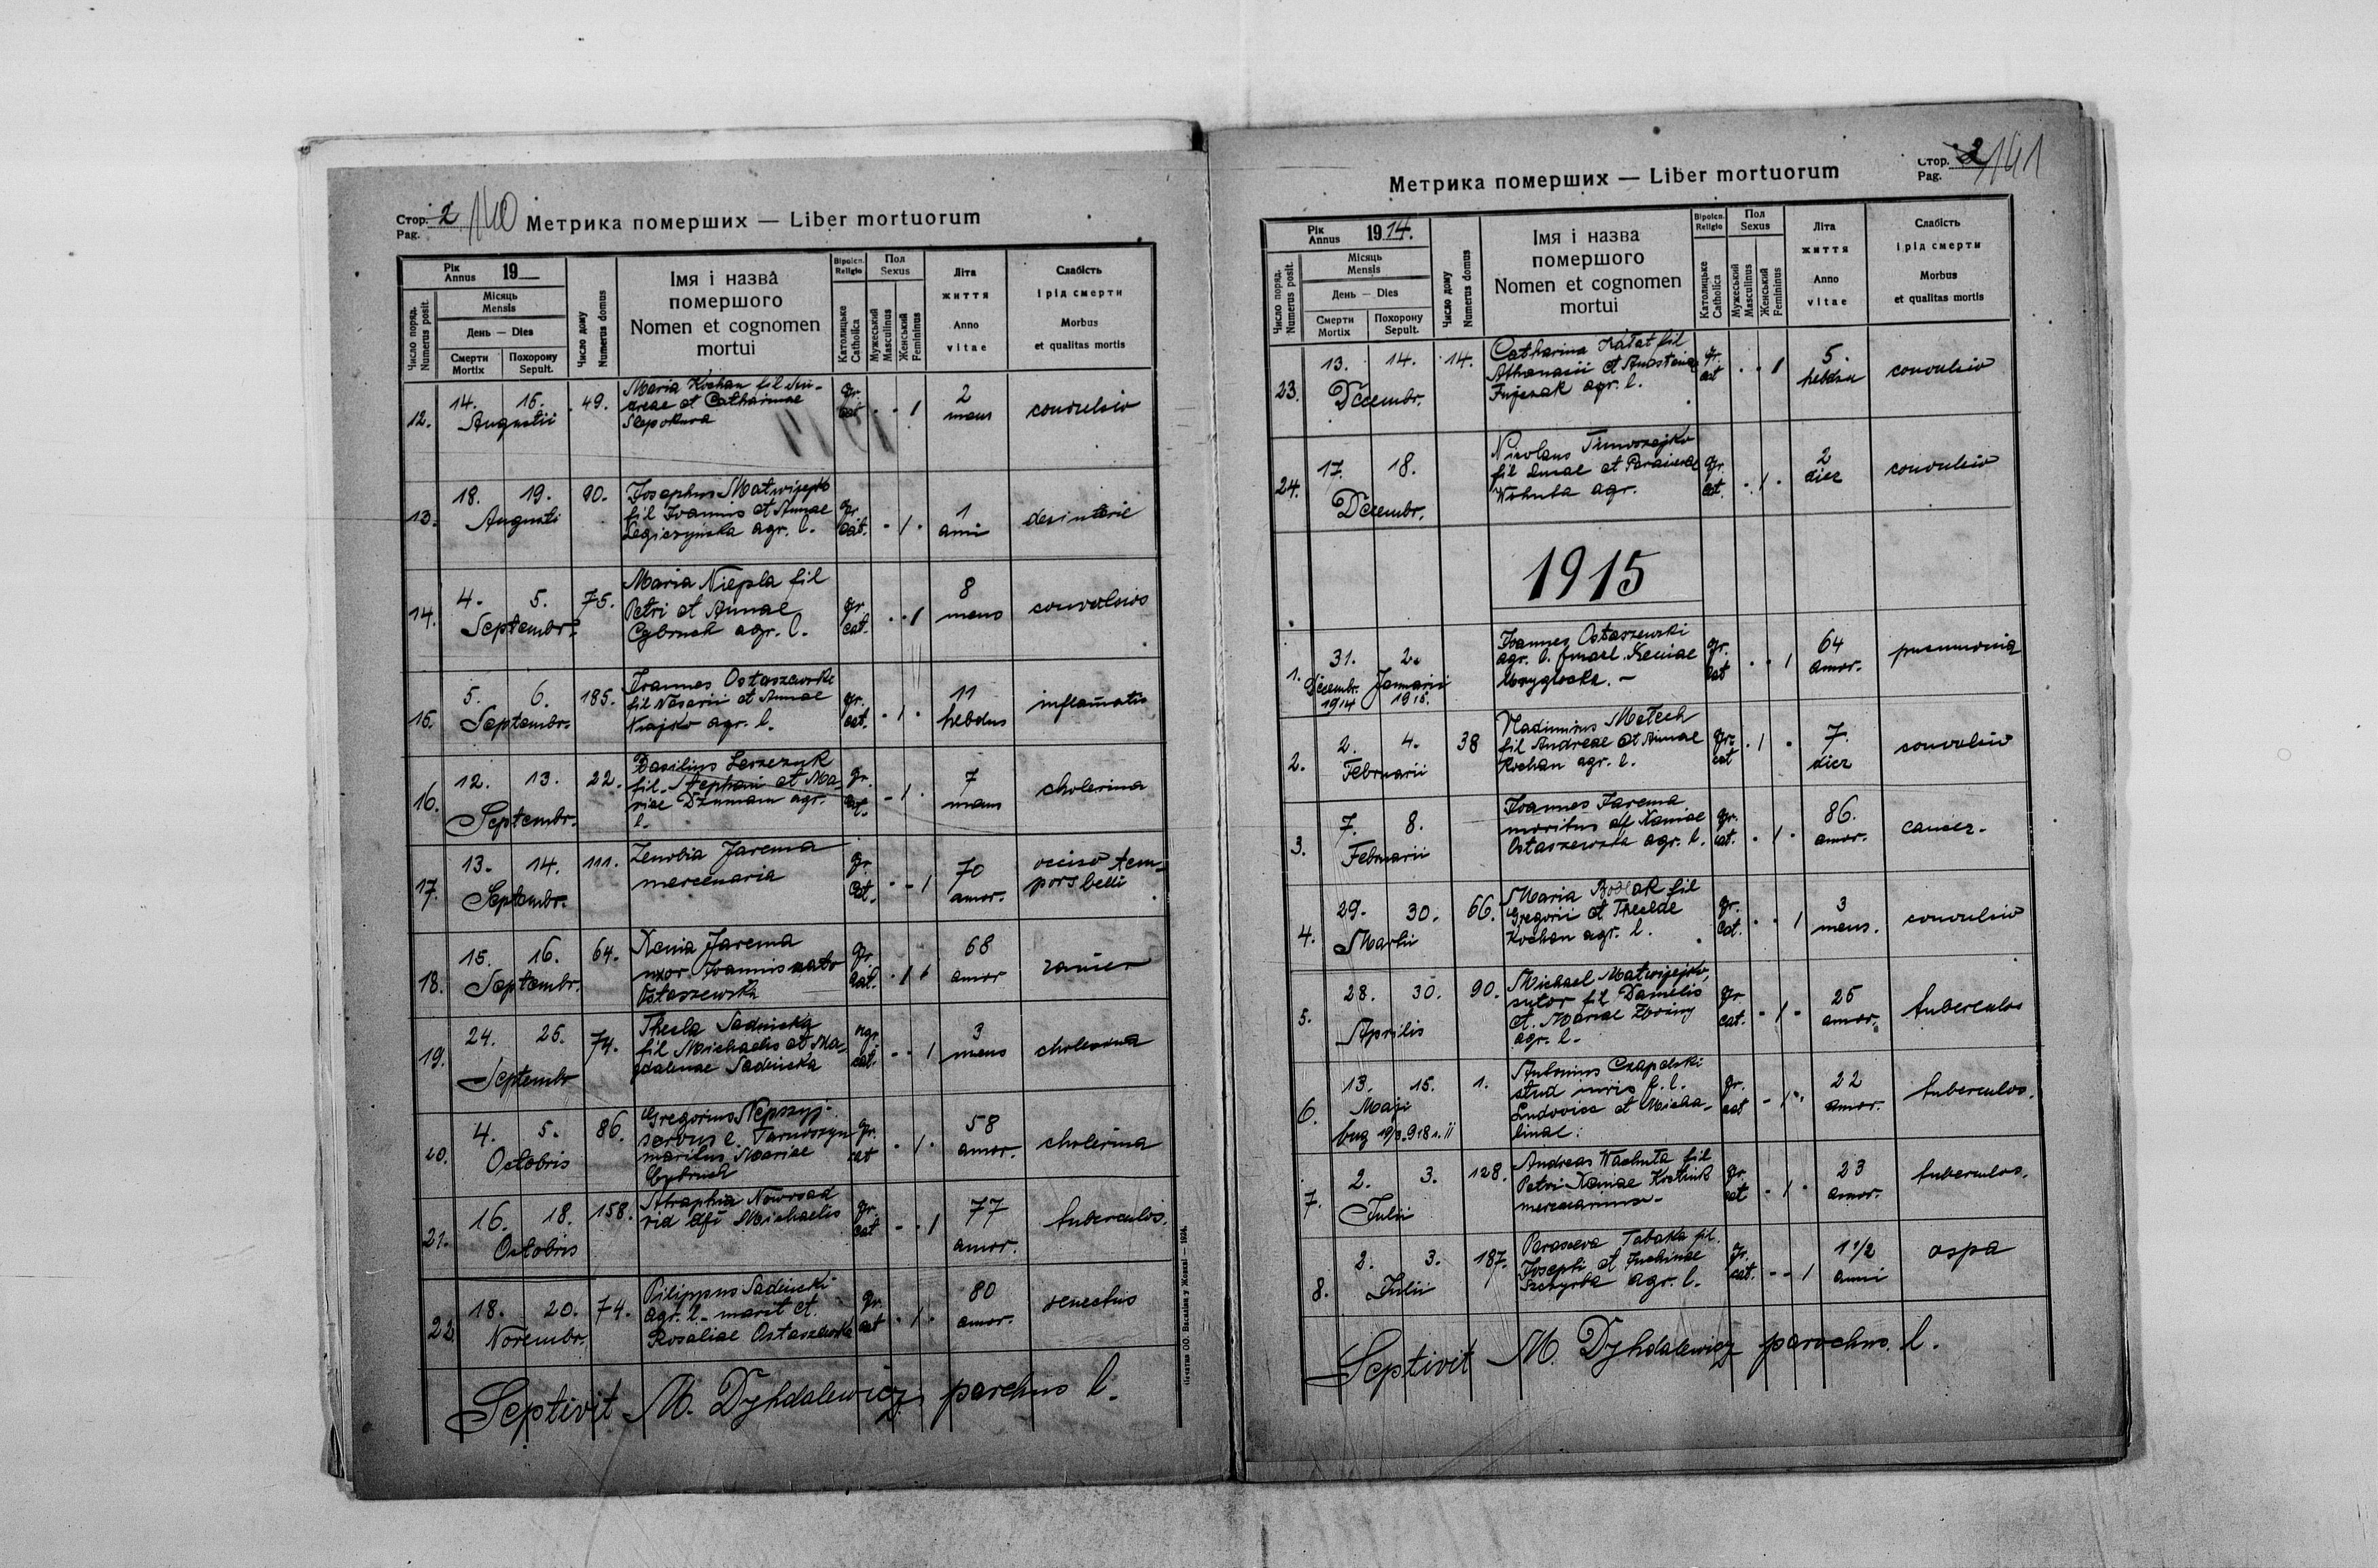 Стор. 2 140
Pag.
Метрика померших — Liber mortuorum
Рік
Annus 19
Число поряд.
Numerus posit.
Місяць
Mensis
День — Dies
Смерти
Mortix
Похорону
Sepult.
Число дому
Numerus domus
Імя і назва
помершого
Nomen et cognomen
mortui
Віроісп.
Religio
Католицьке
Catholica
Пол
Sexus
Мужеський
Masculinus
Женський
Femininus
Літа
життя
Anno
vitae
Слабість
і рід смерти
Morbus
et qualitas mortis
1914
12. 14. 15. Augusti 49.
Maria Kochan fil An-
dreae et Catharinae
gr. cat 1 2 mens convulsio
13. 18. 19. Augusti 90.
Josephus Matwijejko
fil Joannis et Annae
Legiczynska agr. l.
gr. cat. 1 1 anni desinterie
14. 4. 5. Septembr. 75.
Maria Niepla fil
Petri et Annae
Cybruch agr. l.
gr. cat. 1 8 mens convulsios
15. 5. 6. Septembr. 185.
Joannes Ostaszewski
fil Nasarii et Annae
Krajko agr. l.
gr. cat. 1 11 hebdus inflamatio
16. 12. 13. Septembr. 22.
Basilius Leszczyk
fil. Stephani et Ma-
riae Dzumam agr.
l.
gr. cat. 1 7 mens cholerina
17. 13. 14. Septembr. 111.
Zenobia Jarema
mercenaria
gr. cat. 1 70 annor. occiso tem-
pore belli
18. 15. 16. Septembr. 64.
Xenia Jarema
uxor Joannis nato
Ostaszewska
gr. cat. 1 68 annor
19. 24. 25. Septembr 74.
Thecla Sadinska
fil Michaelis et Ma-
gdalenae Sadinska
cat. 1 3 mens cholerina
20. 4. 5. Octobris 86.
Gregorius
servus e. Tarnoszyn
maritus Mariae
Cybruch
gr. cat 1 58 annor. cholerina
21. 16. 18. Octobris 158.
Nowosad
vid Michaelis
gr. cat 1 77 annor. tuberculos.
22 18. 20. Novembr. 74.
Pilippus Sadinski
agr. l. marit et
Rosaliae Ostaszewska
gr. cat 1 80 annor. senectus
Septivit M. Dyhdalewicz parchus l.
Стор. 2 141
Pag.
Метрика померших — Liber mortuorum
Рік
Annus 1914.
Число поряд.
Numerus posit.
Місяць
Mensis
День — Dies
Смерти
Mortix
Похорону
Sepult.
Число дому
Numerus domus
Імя і назва
помершого
Nomen et cognomen
mortui
Віроісп.
Religio
Католицьке
Catholica
Пол
Sexus
Мужеський
Masculinus
Женський
Femininus
Літа
життя
Anno
vitae
Слабість
і рід смерти
Morbus
et qualitas mortis
23. 13. 14. Decembr. 14.
Catharina fil
Athanasii et Anastasia
agr. l.
gr. cat 1 5 hebdu convulsio
24. 17. 18. Decembr.
Nicolaus Timoszejko
fil Lucae et Parascevae
Wahuta agr.
gr. cat. 1 2 dies convulsio
1915
1. 31. Decembr. 1914 2. Januarii 1915.
Joannes Ostaszewski
agr. l. Xeniae
gr. cat 1 64 annor. pneumonia
2. 2. 4. Februarii 38
Vladimirus Metech
fil Andreae et Annae
Kochan agr. l.
gr. cat 1 7. dies convulsio
3. 7. 8. Februarii
Joannes Jarema
maritus Xeniae
Ostaszewska agr. l.
gr. cat. 1 86. annor. cancer.
4. 29. 30. Martii 66.
Maria fil
Gregorii et Theclae
Kochan agr. l.
gr. cat. 1 3 mens. convulsio
5. 28. 30. Aprilis 90.
Michael Matwijejko,
sutor fil Danielis
et. Mariae
agr. l.
gr. cat. 1 25 annor. tuberculos
6. 13. 15. Maji 1.
Antonius Czapelski
stud iuris f. l.
Ludovici et Micha-
linae.
gr. cat 1 22 annor. tuberculos.
7. 2. 3. Julii 128.
Andreas Wachuta fil
Petri Xeniae
mercenarius
gr. cat 1 23 annor. tuberculos.
8. 2. 3. Julii 187.
Parasceva Tabaka fil.
Josephi et
agr. l.
gr. cat. 1 1 1/2 anni ospa
Septivit M. Dyhdalewicz parochus l.